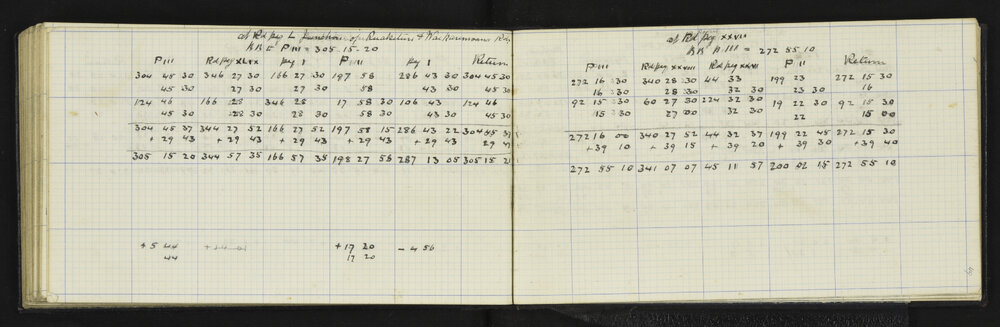 at Rd peg L Junction of Ruakituri & Waikaremoana Rds
BB L P III = 305 . 15 . 20
P III Rd peg XLIX peg I P III peg I Return
304 45 30 346 27 30 166 27 30 197 58 286 43 30 304 45 30
45 30 27 30 27 30 58 43 30 45 30
124 46 166 28 346 28 17 58 30 106 43 124 46
45 30 28 30 28 30 58 30 43 30 45 30
304 45 37 344 27 52 166 27 52 197 58 15 286 43 22 304 45 37
+ 29 43 + 29 43 + 29 43 + 29 43 + 29 43 29 43
305 15 20 344 57 35 166 57 35 198 27 58 287 13 05 305 15 20
+ 5 44 + 17 20 - 4 56
44 17 20
at Rd peg XXVII
BB P III = 272 55 10
P III Rd peg XXVIII Rd peg XXVI P II Return
272 16 30 340 28 30 44 33 199 23 272 15 30
16 30 28 30 32 30 23 30 16
92 15 30 60 27 30 224 32 30 19 22 30 92 15 30
15 30 27 00 32 30 22 15 00
272 16 00 340 27 52 44 32 37 199 22 45 272 15 30
+ 39 10 + 39 15 + 39 20 + 39 30 + 39 40
272 55 10 341 07 07 45 11 57 200 02 15 272 55 10